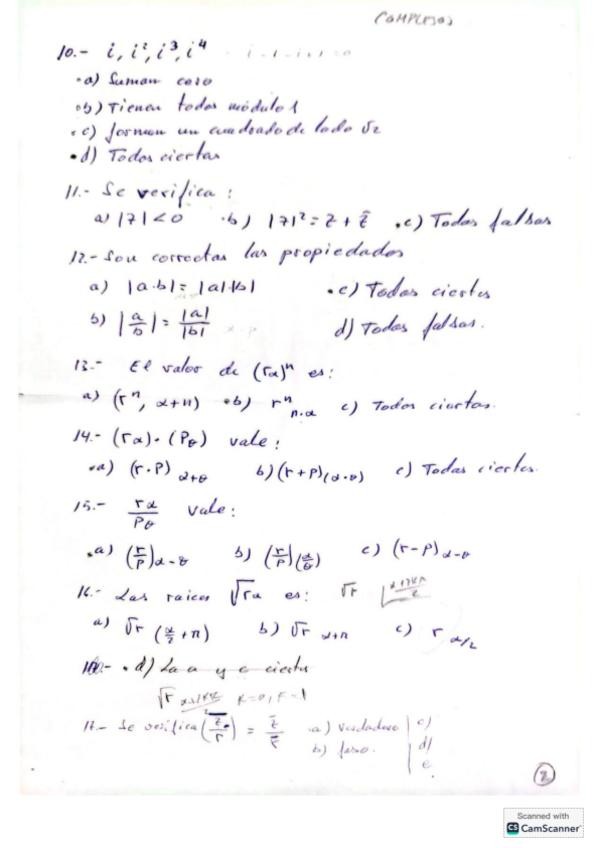 COMPLEJOS
10.- i, i², i³, i⁴
·a) Suman cero
·b) Tienen todos módulo 1
·c) forman un cuadrado de lado √2
·d) Todas ciertas
11.- Se verifica :
a) |z| < 0 ·b) |z|² = z + z̄ ·c) Todas falsas
12.- Son correctas las propiedades
a) |a·b| = |a|·|b| ·c) Todas ciertas
b) |a/b| = |a|/|b| d) Todas falsas.
13.- El valor de (rα)ⁿ es:
a) (rⁿ, α+n) ·b) rⁿ n·α c) Todas ciertas.
14.- (rα)·(Pθ) vale :
·a) (r·P) α+θ b) (r+P)(α·θ) c) Todas ciertas.
15.- rα/Pθ vale :
·a) (r/P)α-θ b) (r/P)(α/θ) c) (r-P)α-θ
16.- Las raices √rα es: √r
a) √r (α/2 + π) b) √r α+π c) r α/2
·d) La a y c ciertas
K=0, K=1
17.- Se verifica = a) verdadero c)
b) falso. d)
e
2
Scanned with
CS CamScanner